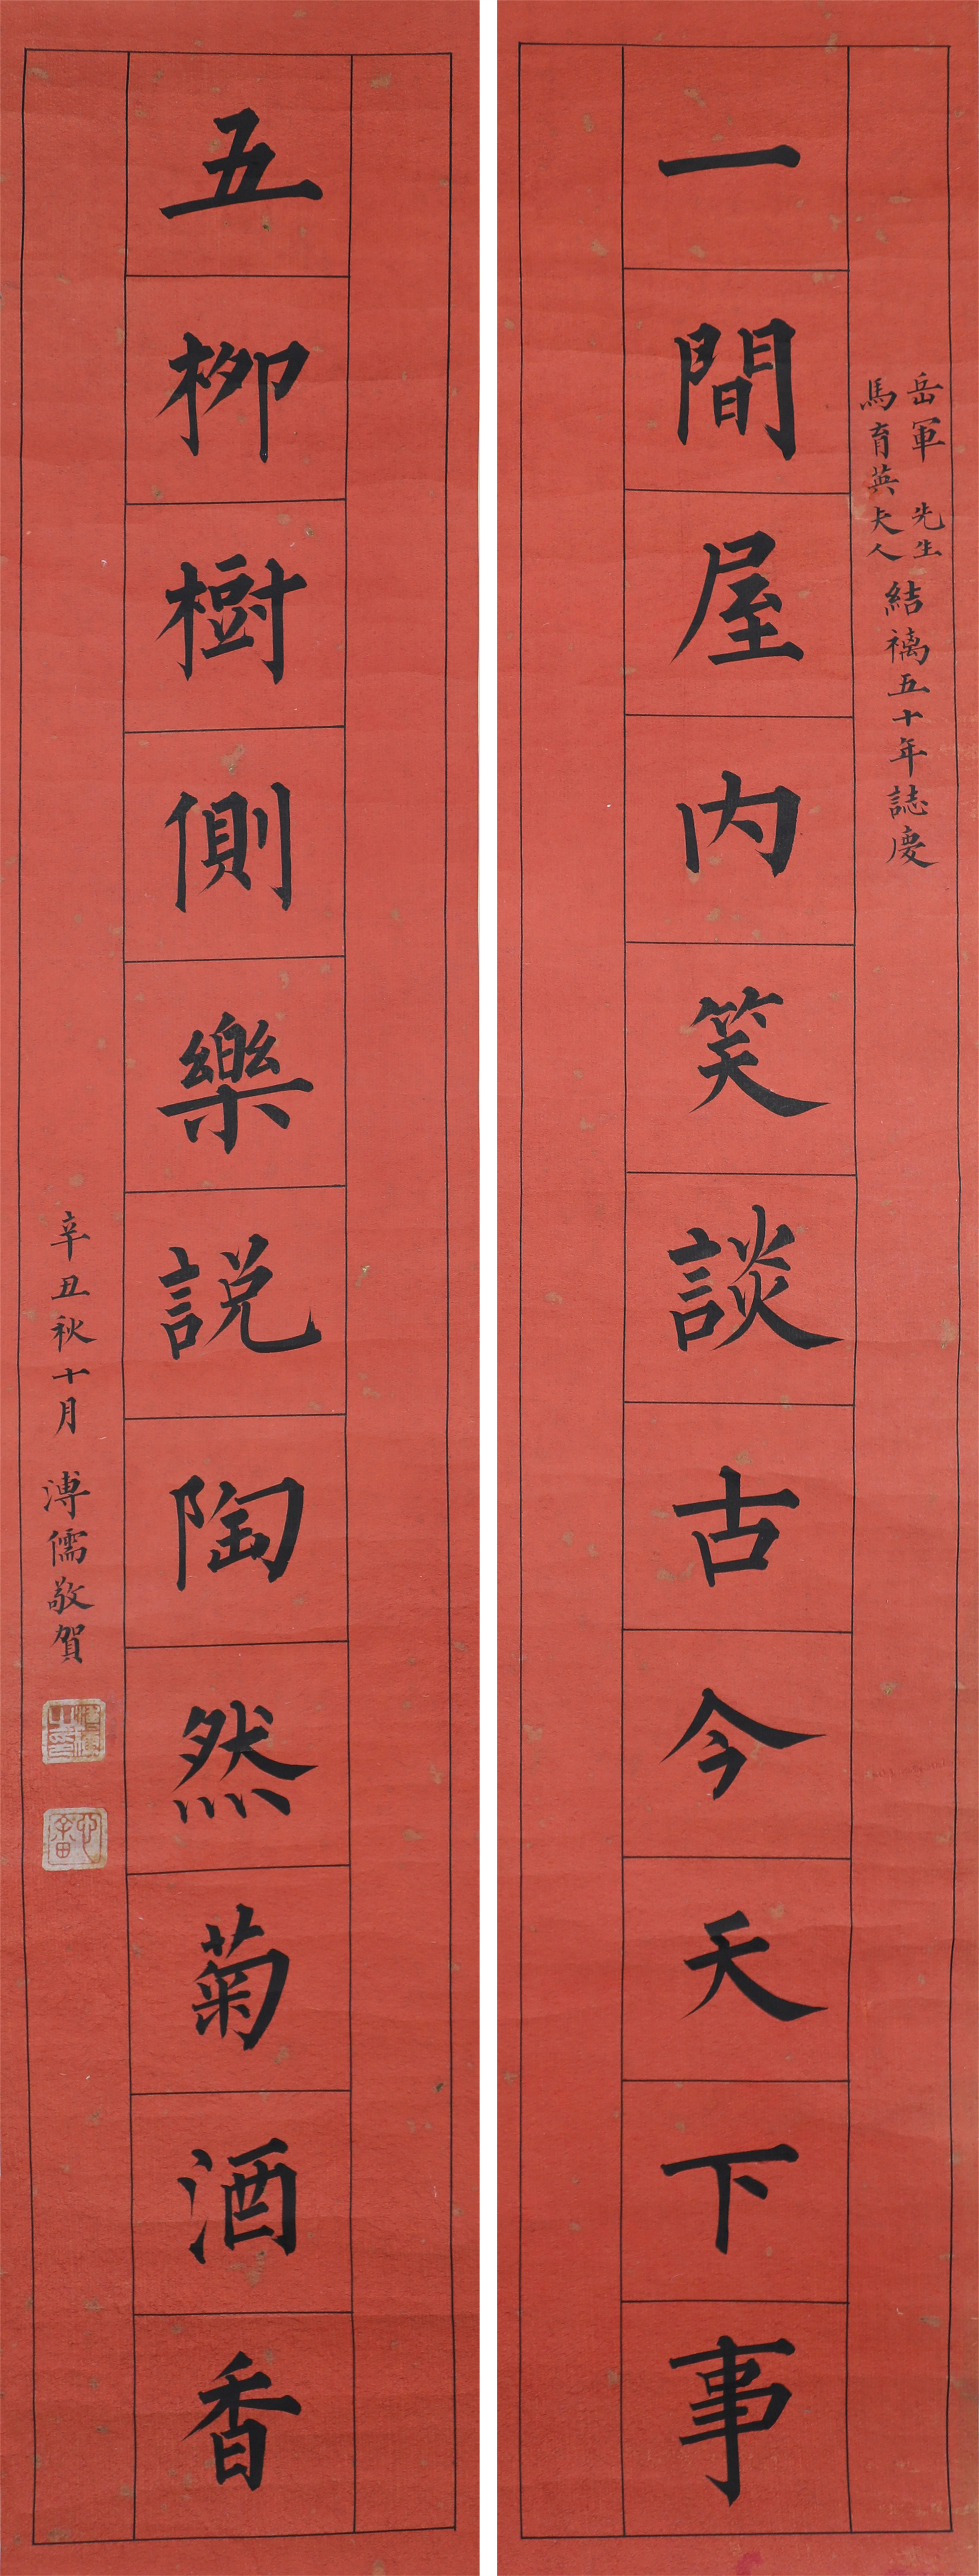 岳軍先生
馬育英夫人
結褵五十年誌慶
一間屋內笑談古今天下事
五柳樹側樂說陶然菊酒香
辛丑秋十月 溥儒敬賀